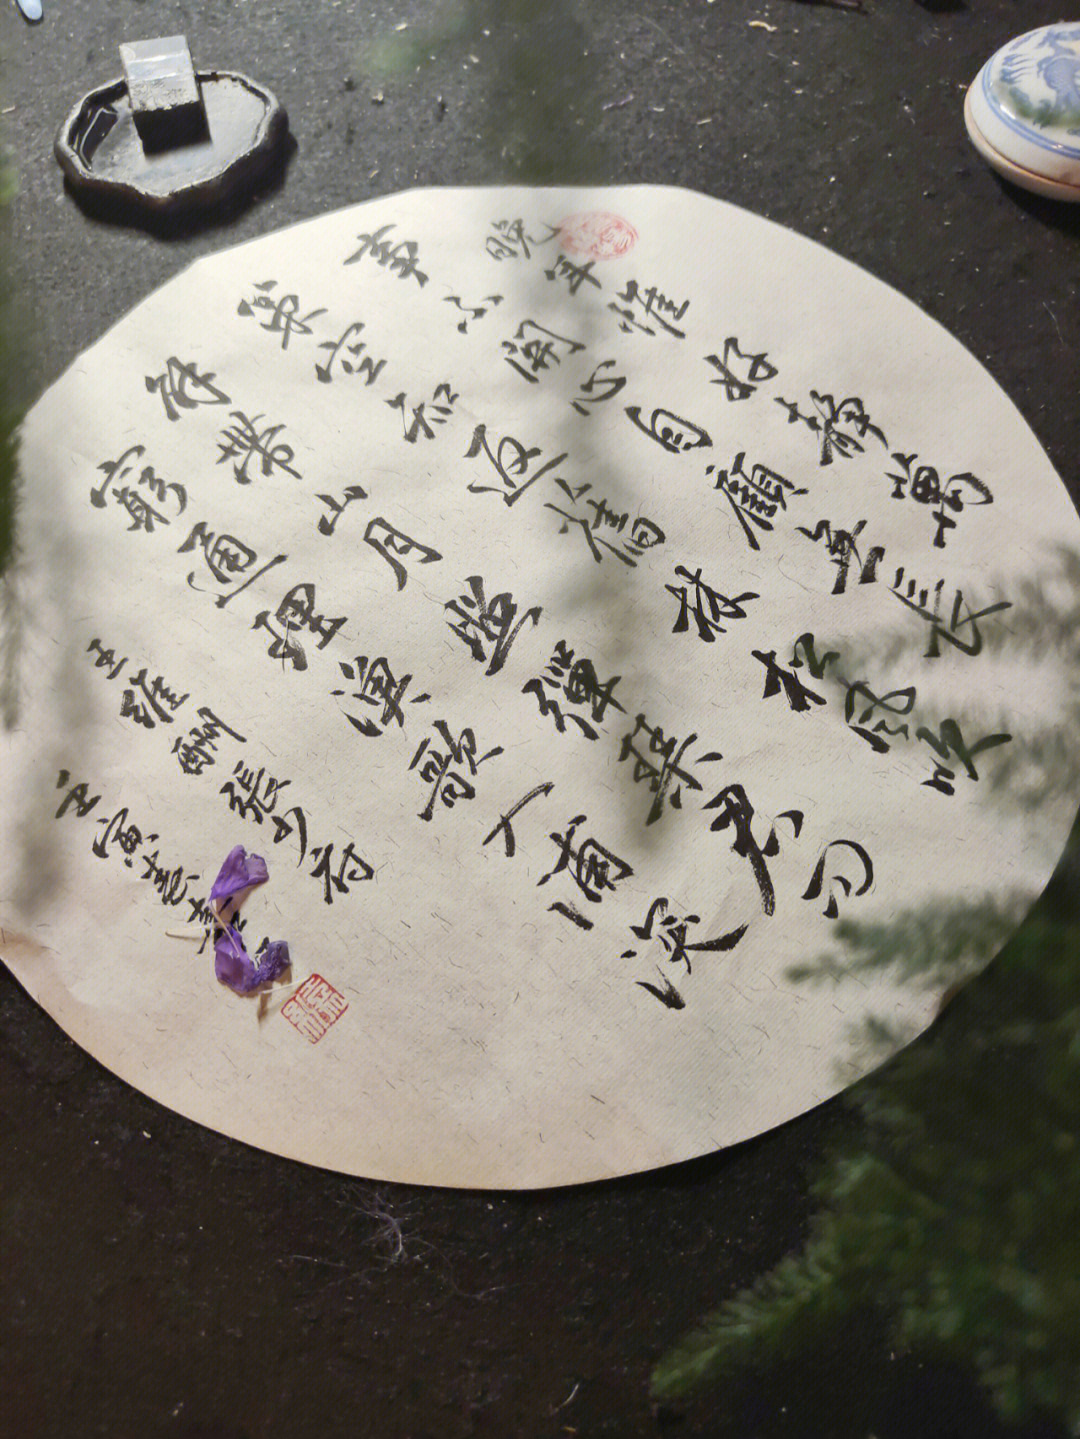 晚年惟好靜萬
事不關心自顧無長
策空知返舊林松風吹
解帶山月照彈琴君問
窮通理漁歌入浦深
王維酬張少府
壬寅